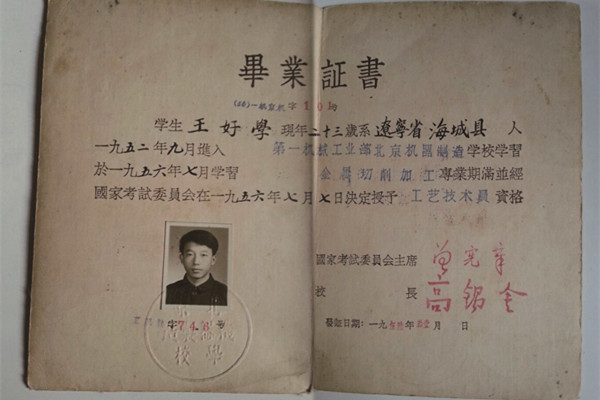 畢業証書
字101号
学生 王好學 現年二十三歲系 遼寧省海城县 人
一九五二年九月進入 第一机械工业部北京机器制造 学校学習
於一九五六年七月学習 金屬切削加工 専業期滿並經
國家考試委員会在一九五六年七月七日決定授予 工艺技术員 資格
國家考試委員会主席
校長 高錫金
字74.8号
發証日期:一九 年 月 日